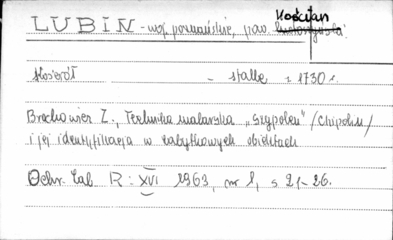 Kościan
LUBIN - woj. poznańskie, pow.
Kościół - stalle z 1730 r.
Brochowicz Z., Technika malarska „Szypolen" /Chipolin/
i jej identyfikacja w zabytkowych obiektach
Ochr. Zab. R: XVI 1963, nr 1, s 21-26.